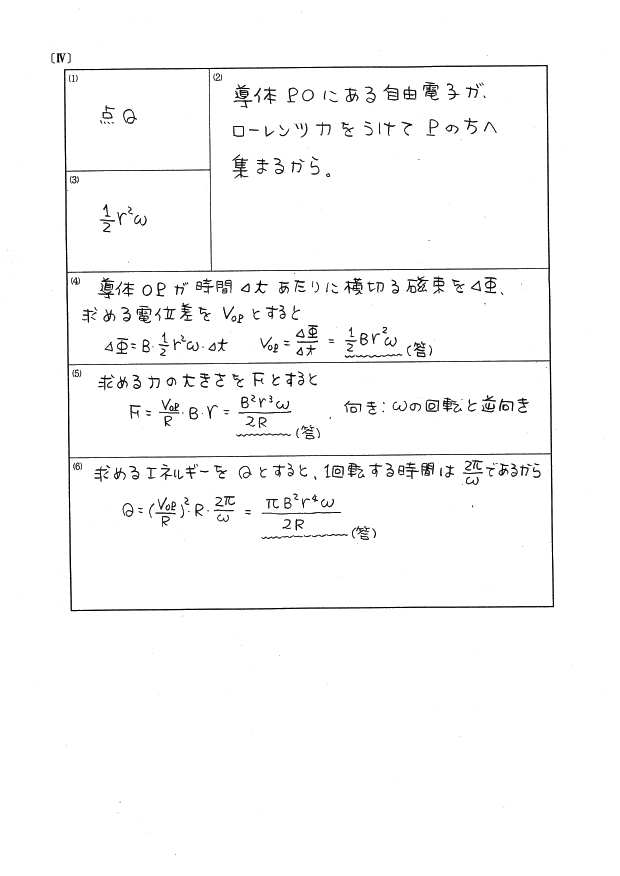 〔Ⅳ〕
(1)
点Q
(2)
導体 POにある自由電子が、
ローレンツ力をうけて Pの方へ
集まるから。
(3)
1/2 r²ω
(4)
導体 OPが時間Δtあたりに横切る磁束をΔΦ、
求める電位差を V_OPとすると
ΔΦ=B・1/2 r²ω・Δt V_OP = ΔΦ/Δt = 1/2 Br²ω (答)
(5)
求める力の大きさを Fとすると
F = V_OP/R・B・r = B²r³ω/2R (答) . 向き:ωの回転と逆向き
(6)
求めるエネルギーを Qとすると、1回転する時間は 2π/ω であるから
Q=(V_OP/R)²・R・2π/ω = πB²r⁴ω/2R (答)